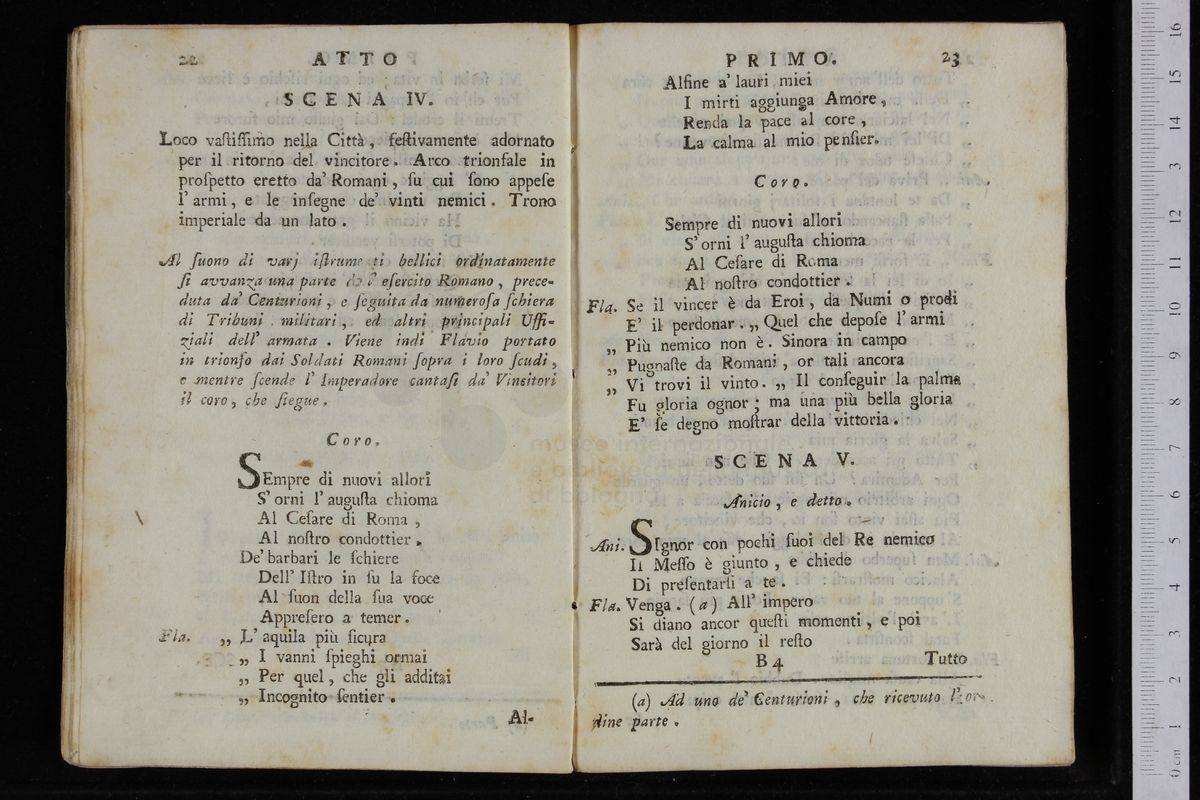 22 ATTO
SCENA IV.
Loco vaſtiſſimo nella Città, feſtivamente adornato
per il ritorno del vincitore. Arco trionfale in
proſpetto eretto da' Romani, ſu cui ſono appeſe
l'armi, e le inſegne de' vinti nemici. Trono
imperiale da un lato.
Al ſuono di varj iſtrume ti bellici ordinatamente
ſi avvanza una parte eſercito Romano, prece-
duta da' Centurioni, e ſeguita da numeroſa ſchiera
di Tribuni militari, ed altri principali Uffi-
ziali dell' armata. Viene indi Flavio portato
in trionfo dai Soldati Romani ſopra i loro ſcudi,
e mentre ſcende l' Imperadore cantaſi da' Vincitori
il coro, che ſiegue.
Coro.
SEmpre di nuovi allori
S' orni l' auguſta chioma
Al Ceſare di Roma,
Al noſtro condottier.
De' barbari le ſchiere
Dell' Iſtro in ſu la foce
Al ſuon della ſua voce
Appreſero a temer.
Fla. „ L' aquila più ſicura
„ I vanni ſpieghi ormai
„ Per quel, che gli additai
„ Incognito ſentier.
Al-
PRIMO. 23
Alfine a' lauri miei
I mirti aggiunga Amore,
Renda la pace al core,
La calma al mio penſier.
Coro.
Sempre di nuovi allori
S' orni l' auguſta chioma
Al Ceſare di Roma
Al noſtro condottier.
Fla. Se il vincer è da Eroi, da Numi o prodi
E' il perdonar. „ Quel che depoſe l' armi
„ Più nemico non è. Sinora in campo
„ Pugnaſte da Romani, or tali ancora
„ Vi trovi il vinto. „ Il conſeguir la palma
Fu gloria ognor; ma una più bella gloria
E' ſe degno moſtrar della vittoria.
SCENA V.
Anicio, e detto.
Ani. SIgnor con pochi ſuoi del Re nemico
Il Meſſo è giunto, e chiede
Di preſentarſi a te.
Fla. Venga. (a) All' impero
Si diano ancor queſti momenti, e poi
Sarà del giorno il reſto
B 4 Tutto
(a) Ad uno de' Centurioni, che ricevuto l'or-
dine parte.
museo internazionale
e biblioteca
di bologna
0 cm 1 2 3 4 5 6 7 8 9 10 11 12 13 14 15 16